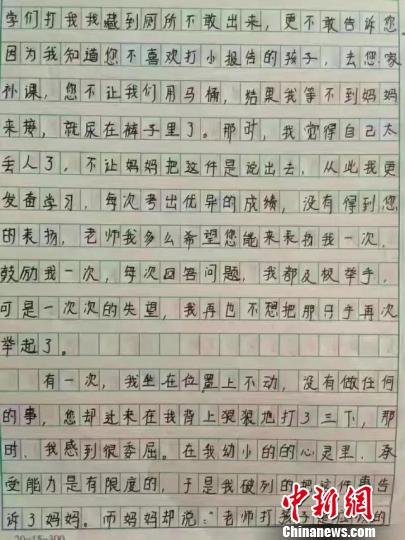 学们打我我藏到厕所不敢出来,更不敢告诉您.
因为我知道您不喜欢打小报告的孩子,去您家
补课,您不让我们用马桶,结果我等不到妈妈
来接,就尿在裤子里了。那时,我觉得自己太
丢人了,不让妈妈把这件是说出去,从此我更
发奋学习,每次考出优异的成绩,没有得到您
的表扬,老师我多么希望您能来表扬我一次,
鼓励我一次,每次回答问题,我都及极举手,
可是一次次的失望,我再也不想把那只手再次
举起了。
有一次,我坐在位置上不动,没有做任何
的事,您却过来在我背上狠狠地打了三下,那
时,我感到很委屈。在我幼小的的心灵里,承
受能力是有限度的,于是我破列的把这件事告
诉了妈妈。而妈妈却说:"老师打孩子是
的
20×15=300
中新网
Chinanews.com